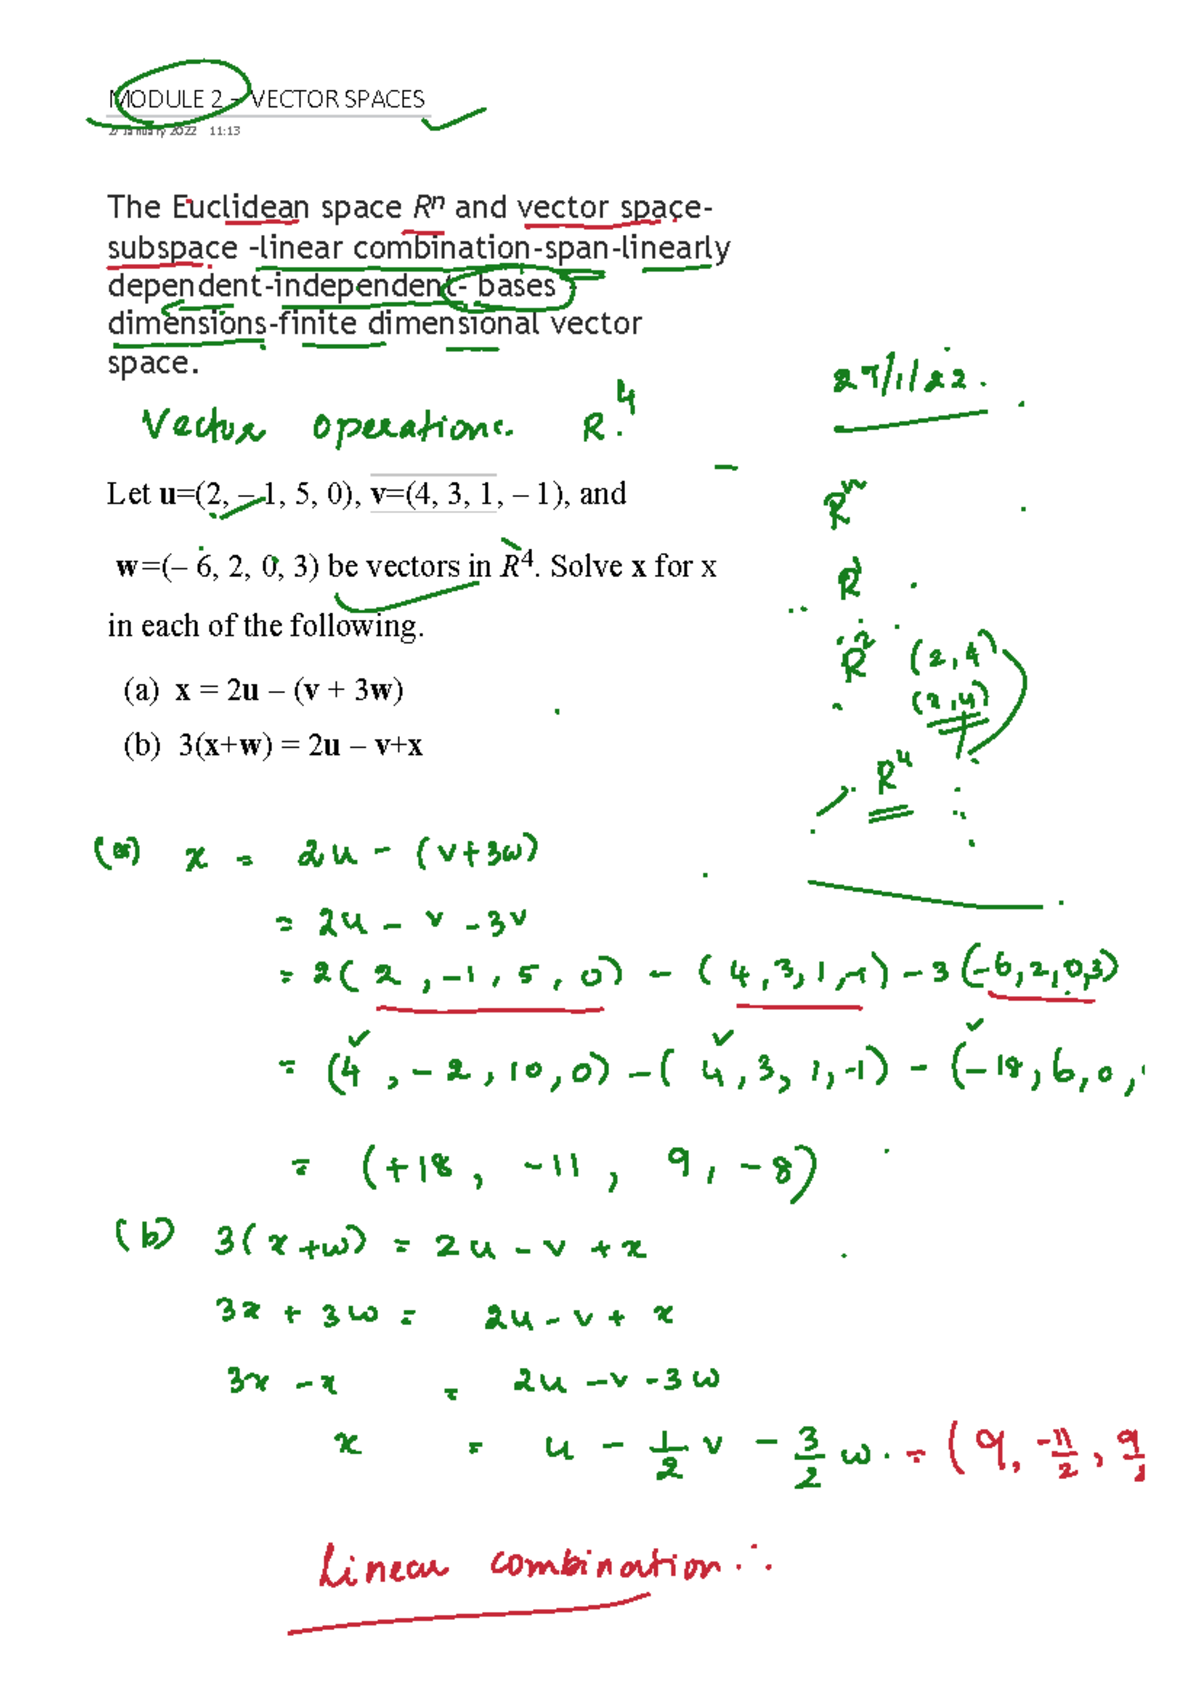 MODULE 2 – VECTOR SPACES
27 January 2022 11:13
The Euclidean space Rⁿ and vector space-
subspace -linear combination-span-linearly
dependent-independent- bases -
dimensions-finite dimensional vector
space.
27/1/22.
Vector operations. R⁴
Let u=(2, – 1, 5, 0), v=(4, 3, 1, – 1), and
Rⁿ
w=(– 6, 2, 0, 3) be vectors in R⁴. Solve x for x
R¹
in each of the following.
R² (2, 4)
(2, 4)
(a) x = 2u – (v + 3w)
(b) 3(x+w) = 2u – v+x
R⁴
(a) x = 2u - (v+3w)
= 2u - v - 3v
= 2(2, -1, 5, 0) - (4, 3, 1, -1) - 3(-6, 2, 0, 3)
= (4, -2, 10, 0) - (4, 3, 1, -1) - (-18, 6, 0,
= (+18, -11, 9, -8)
(b) 3(x+w) = 2u - v + x
3x + 3w = 2u - v + x
3x - x = 2u - v - 3w
x = u - 1/2 v - 3/2 w. = (9, -11/2, 9/2
Linear combination ∴